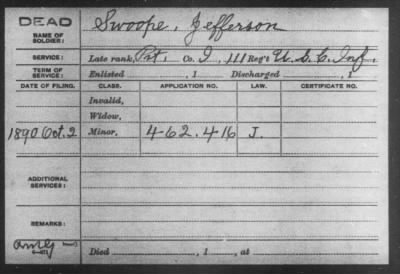 DEAD
NAME OF SOLDIER: Swoope, Jefferson
SERVICE: Late rank, Pvt. Co. I, 111 Reg't U.S.C. Inf.
TERM OF SERVICE: Enlisted , 1 Discharged , 1
DATE OF FILING. CLASS. APPLICATION NO. LAW. CERTIFICATE NO.
Invalid,
Widow,
1890 Oct. 2 Minor, 462.416 J.
ADDITIONAL SERVICES:
REMARKS:
Died , 1 , at